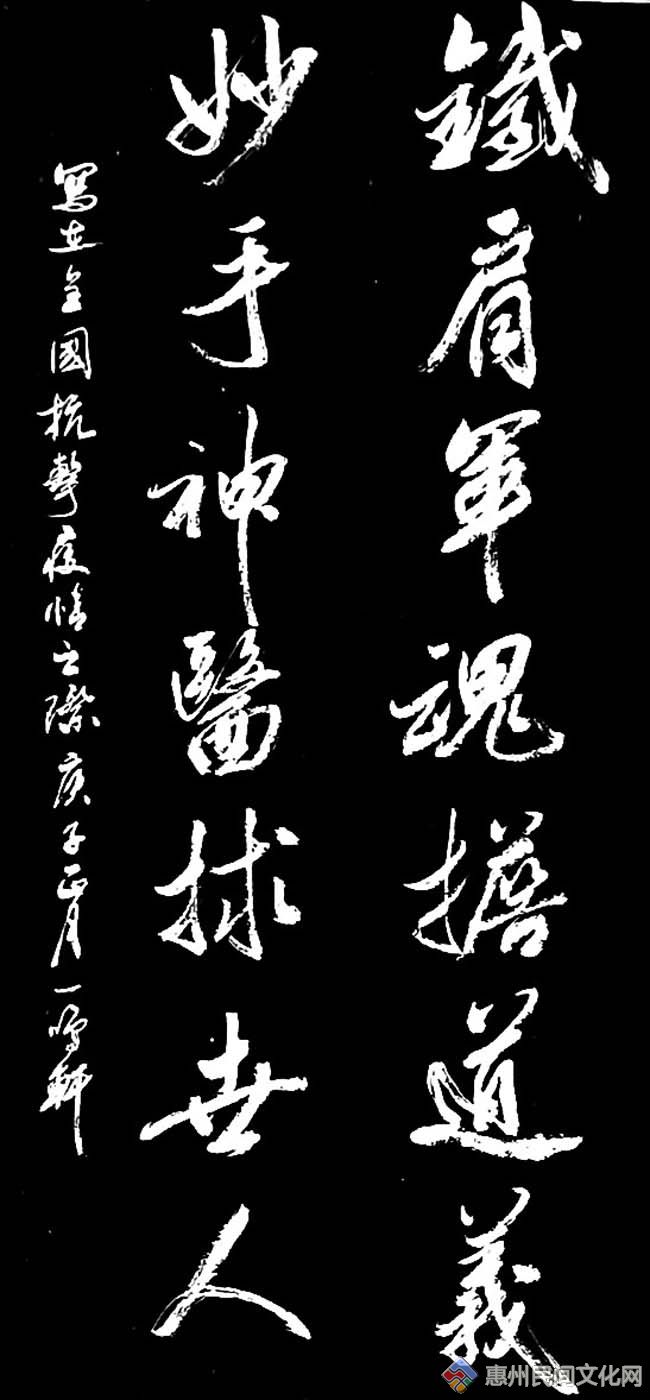 鐵肩軍魂擔道義
妙手神醫捄世人
寫在全國抗擊疫情之際庚子正月一鳴軒
惠州民间文化网